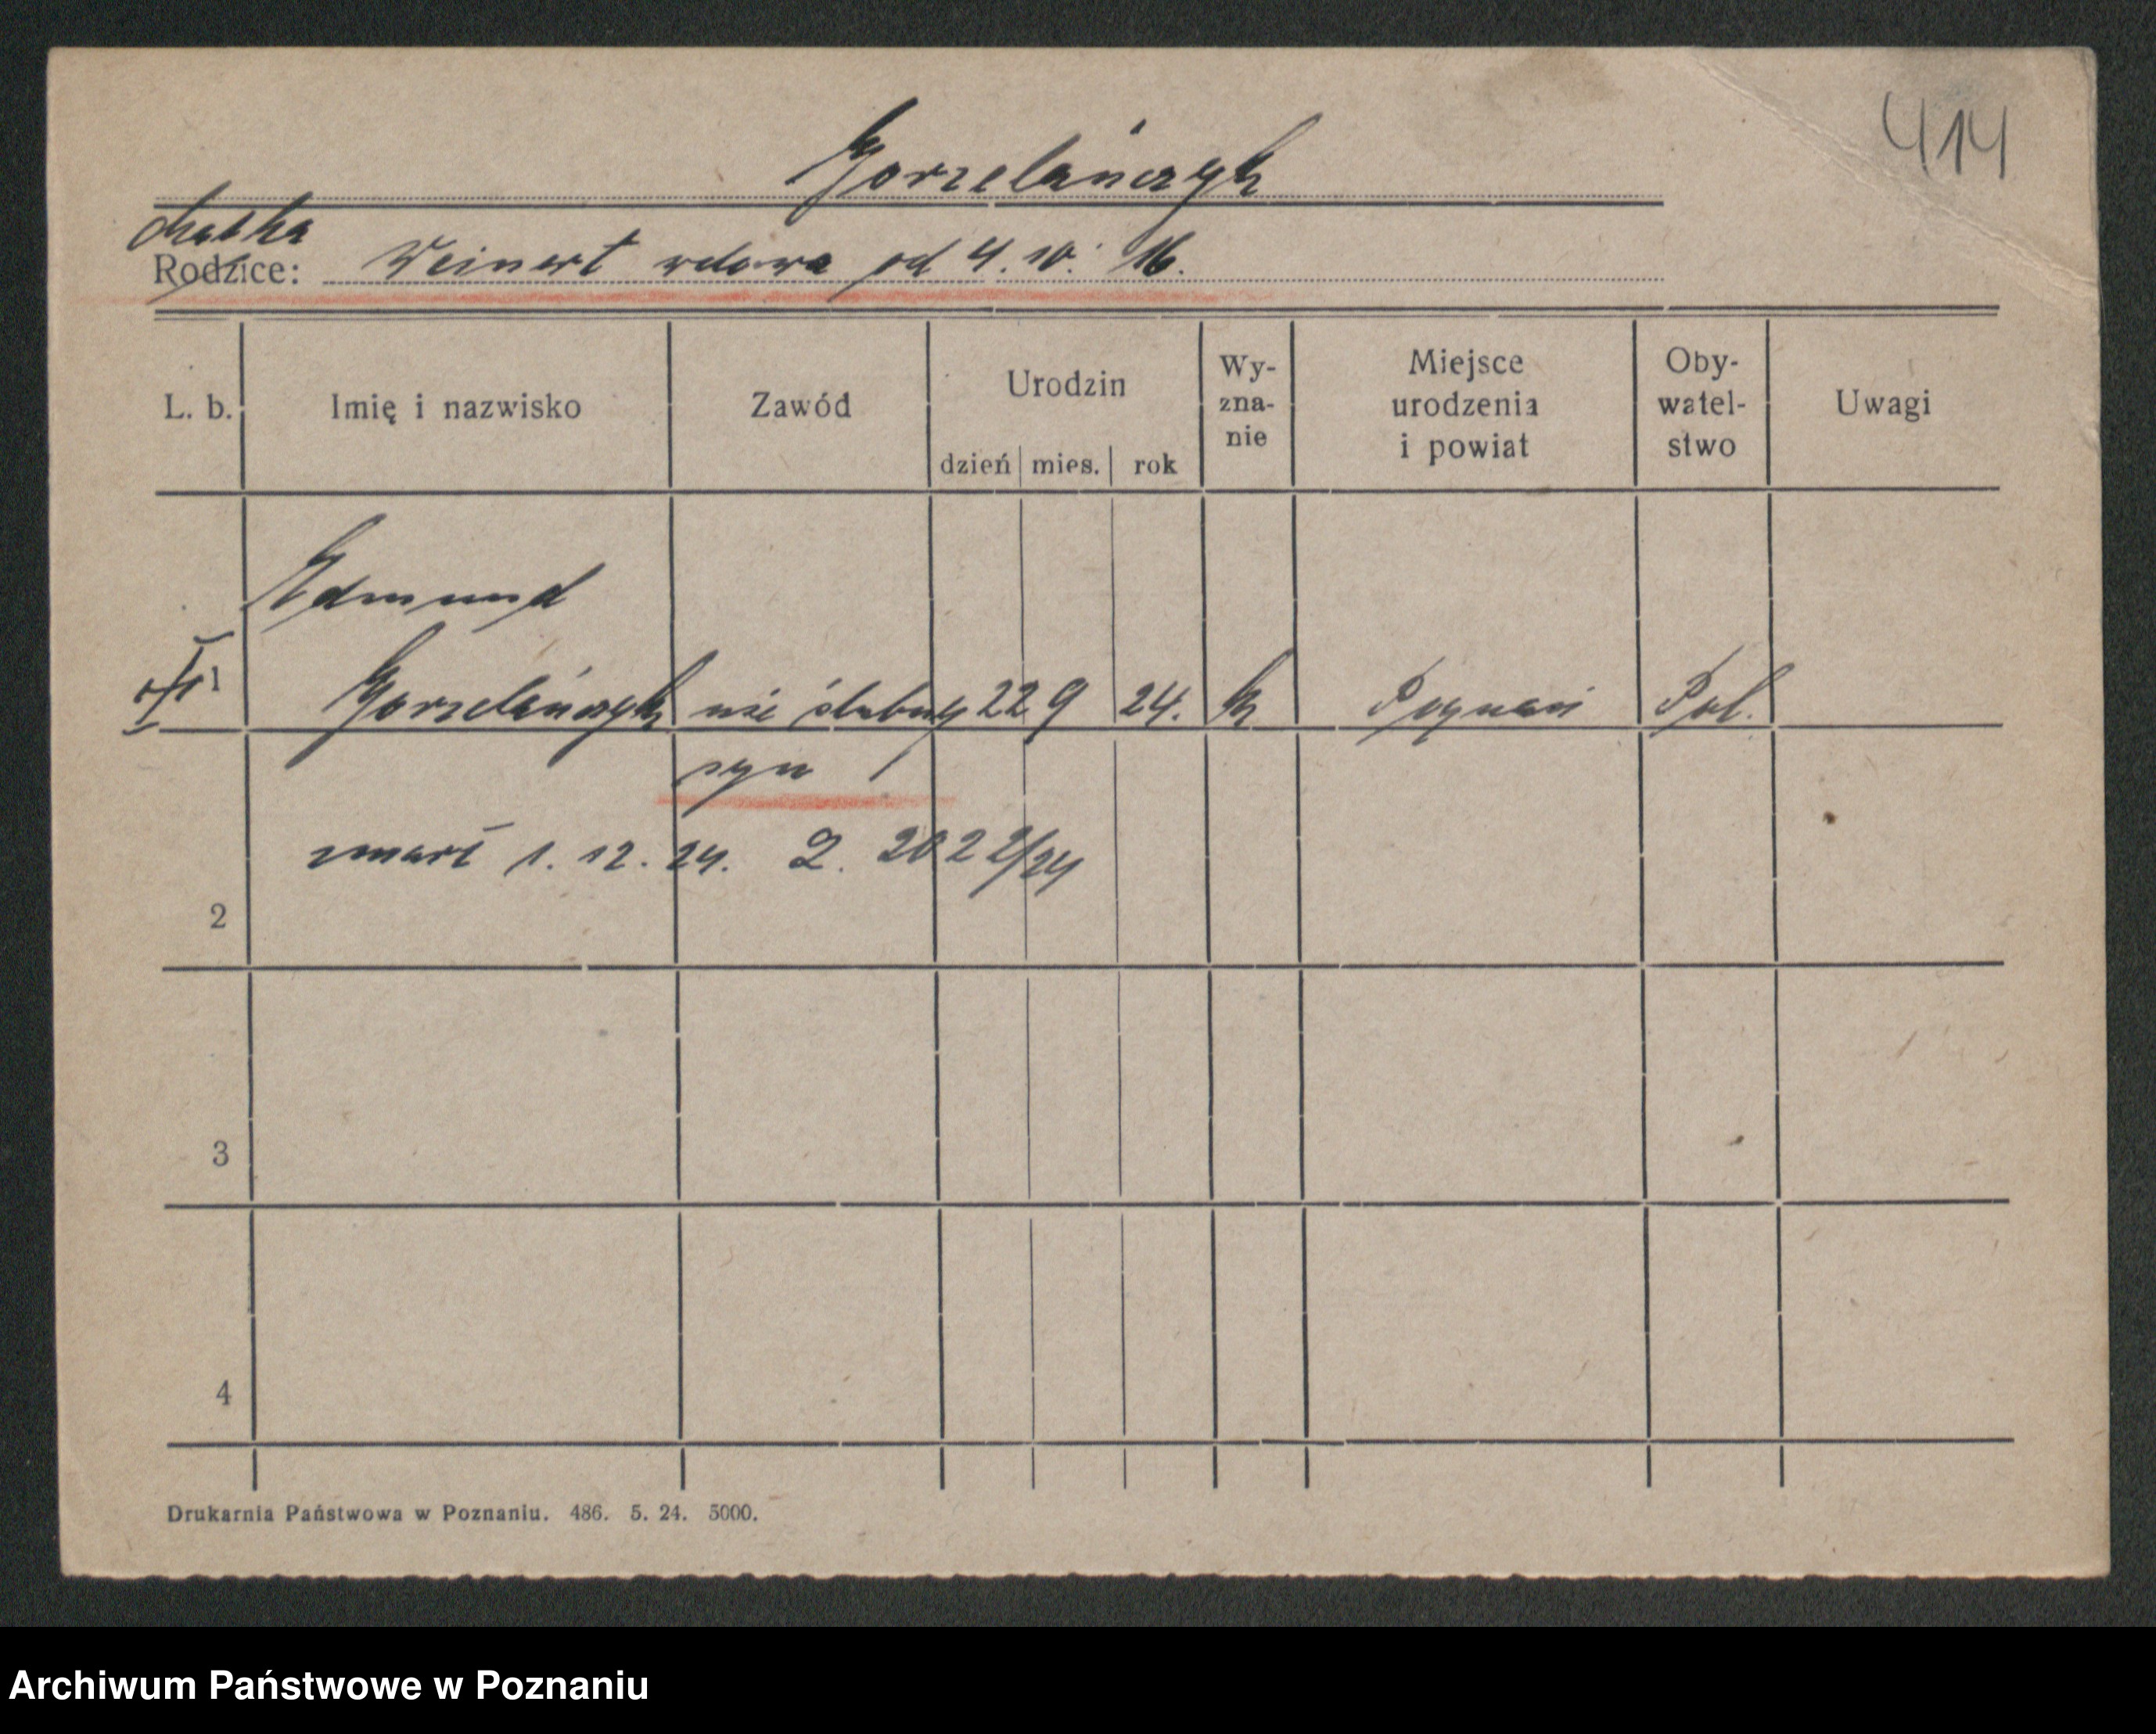 414
Gorzelańczyk
Matka
Rodzice: Weinert wdowa od 4. 10. 16.
L. b. Imię i nazwisko Zawód Urodzin dzień mies. rok Wy-zna-nie Miejsce urodzenia i powiat Oby-watel-stwo Uwagi
Edmund
1 Gorzelańczyk nie ślubny 22 9 24. k Poznań Pol.
syn
zmarł 1. 12. 24. 2. 2022/24
2
3
4
Drukarnia Państwowa w Poznaniu. 486. 5. 24. 5000.
Archiwum Państwowe w Poznaniu